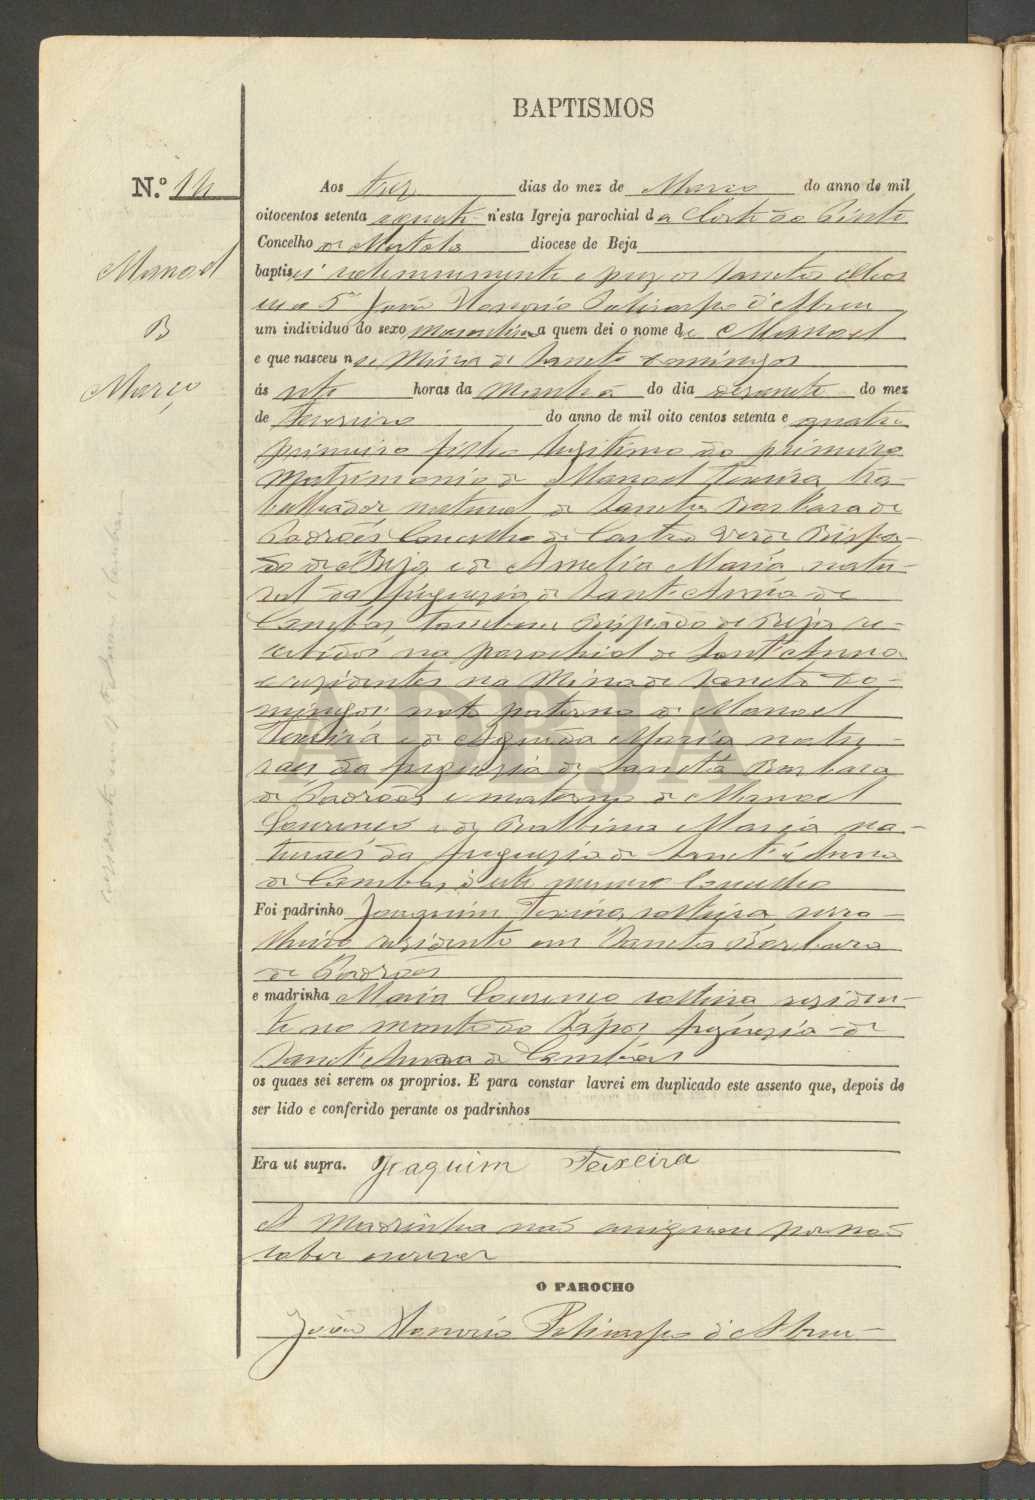 BAPTISMOS
N.º 14
Manoel
B
Março
Aos trez dias do mez de Março do anno de mil
oitocentos setenta equatro n'esta Igreja parochial da Corte do Pinto
Concelho de Mertola diocese de Beja
baptisei solemnemente e puz os Sanctos Oleos
eu o João Honorio Policarpo d'Abreu
um individuo do sexo masculino a quem dei o nome de Manoel
e que nasceu n a Mina de Sancto Domingos
ás sete horas da manhã do dia desanete do mez
de Fevereiro do anno de mil oito centos setenta e quatro
primeiro filho legitimo do primeiro
matrimonio de Manoel Texeira, tra-
balhador natural de Sancta Barbara de
Padrões Concelho de Castro Verde Bispa-
do de Beja e de Amelia Maria natu-
ral da freguezia de Sant'Anna de
Cambas, tambem Bispado de Beja re-
cebidos na parochial de Sant'Anna
e rezidentes na Mina de Sancto Do-
mingos: neto paterno de Manoel
Texeira e de Maria natu-
raes da freguezia de Sancta Barbara
de Padrões e materno de Manoel
Lourenço e de Balbina Maria na-
turaes da freguezia de Sanct'Anna
de Cambas, d'este mesmo Concelho
Foi padrinho Joaquim Texeira, solteiro, serra-
lheiro rezidente em Sancta Barbara
de Padrões
e madrinha Maria Lourenço solteira reziden-
te no monte do freguezia de
Sanct'Anna de Cambas
os quaes sei serem os proprios. E para constar lavrei em duplicado este assento que, depois de
ser lido e conferido perante os padrinhos
Era ut supra. Joaquim Teixeira
A Madrinha não assignou por não
saber escrever
O PAROCHO
João Honorio Policarpo d'Abreu
ADBJA